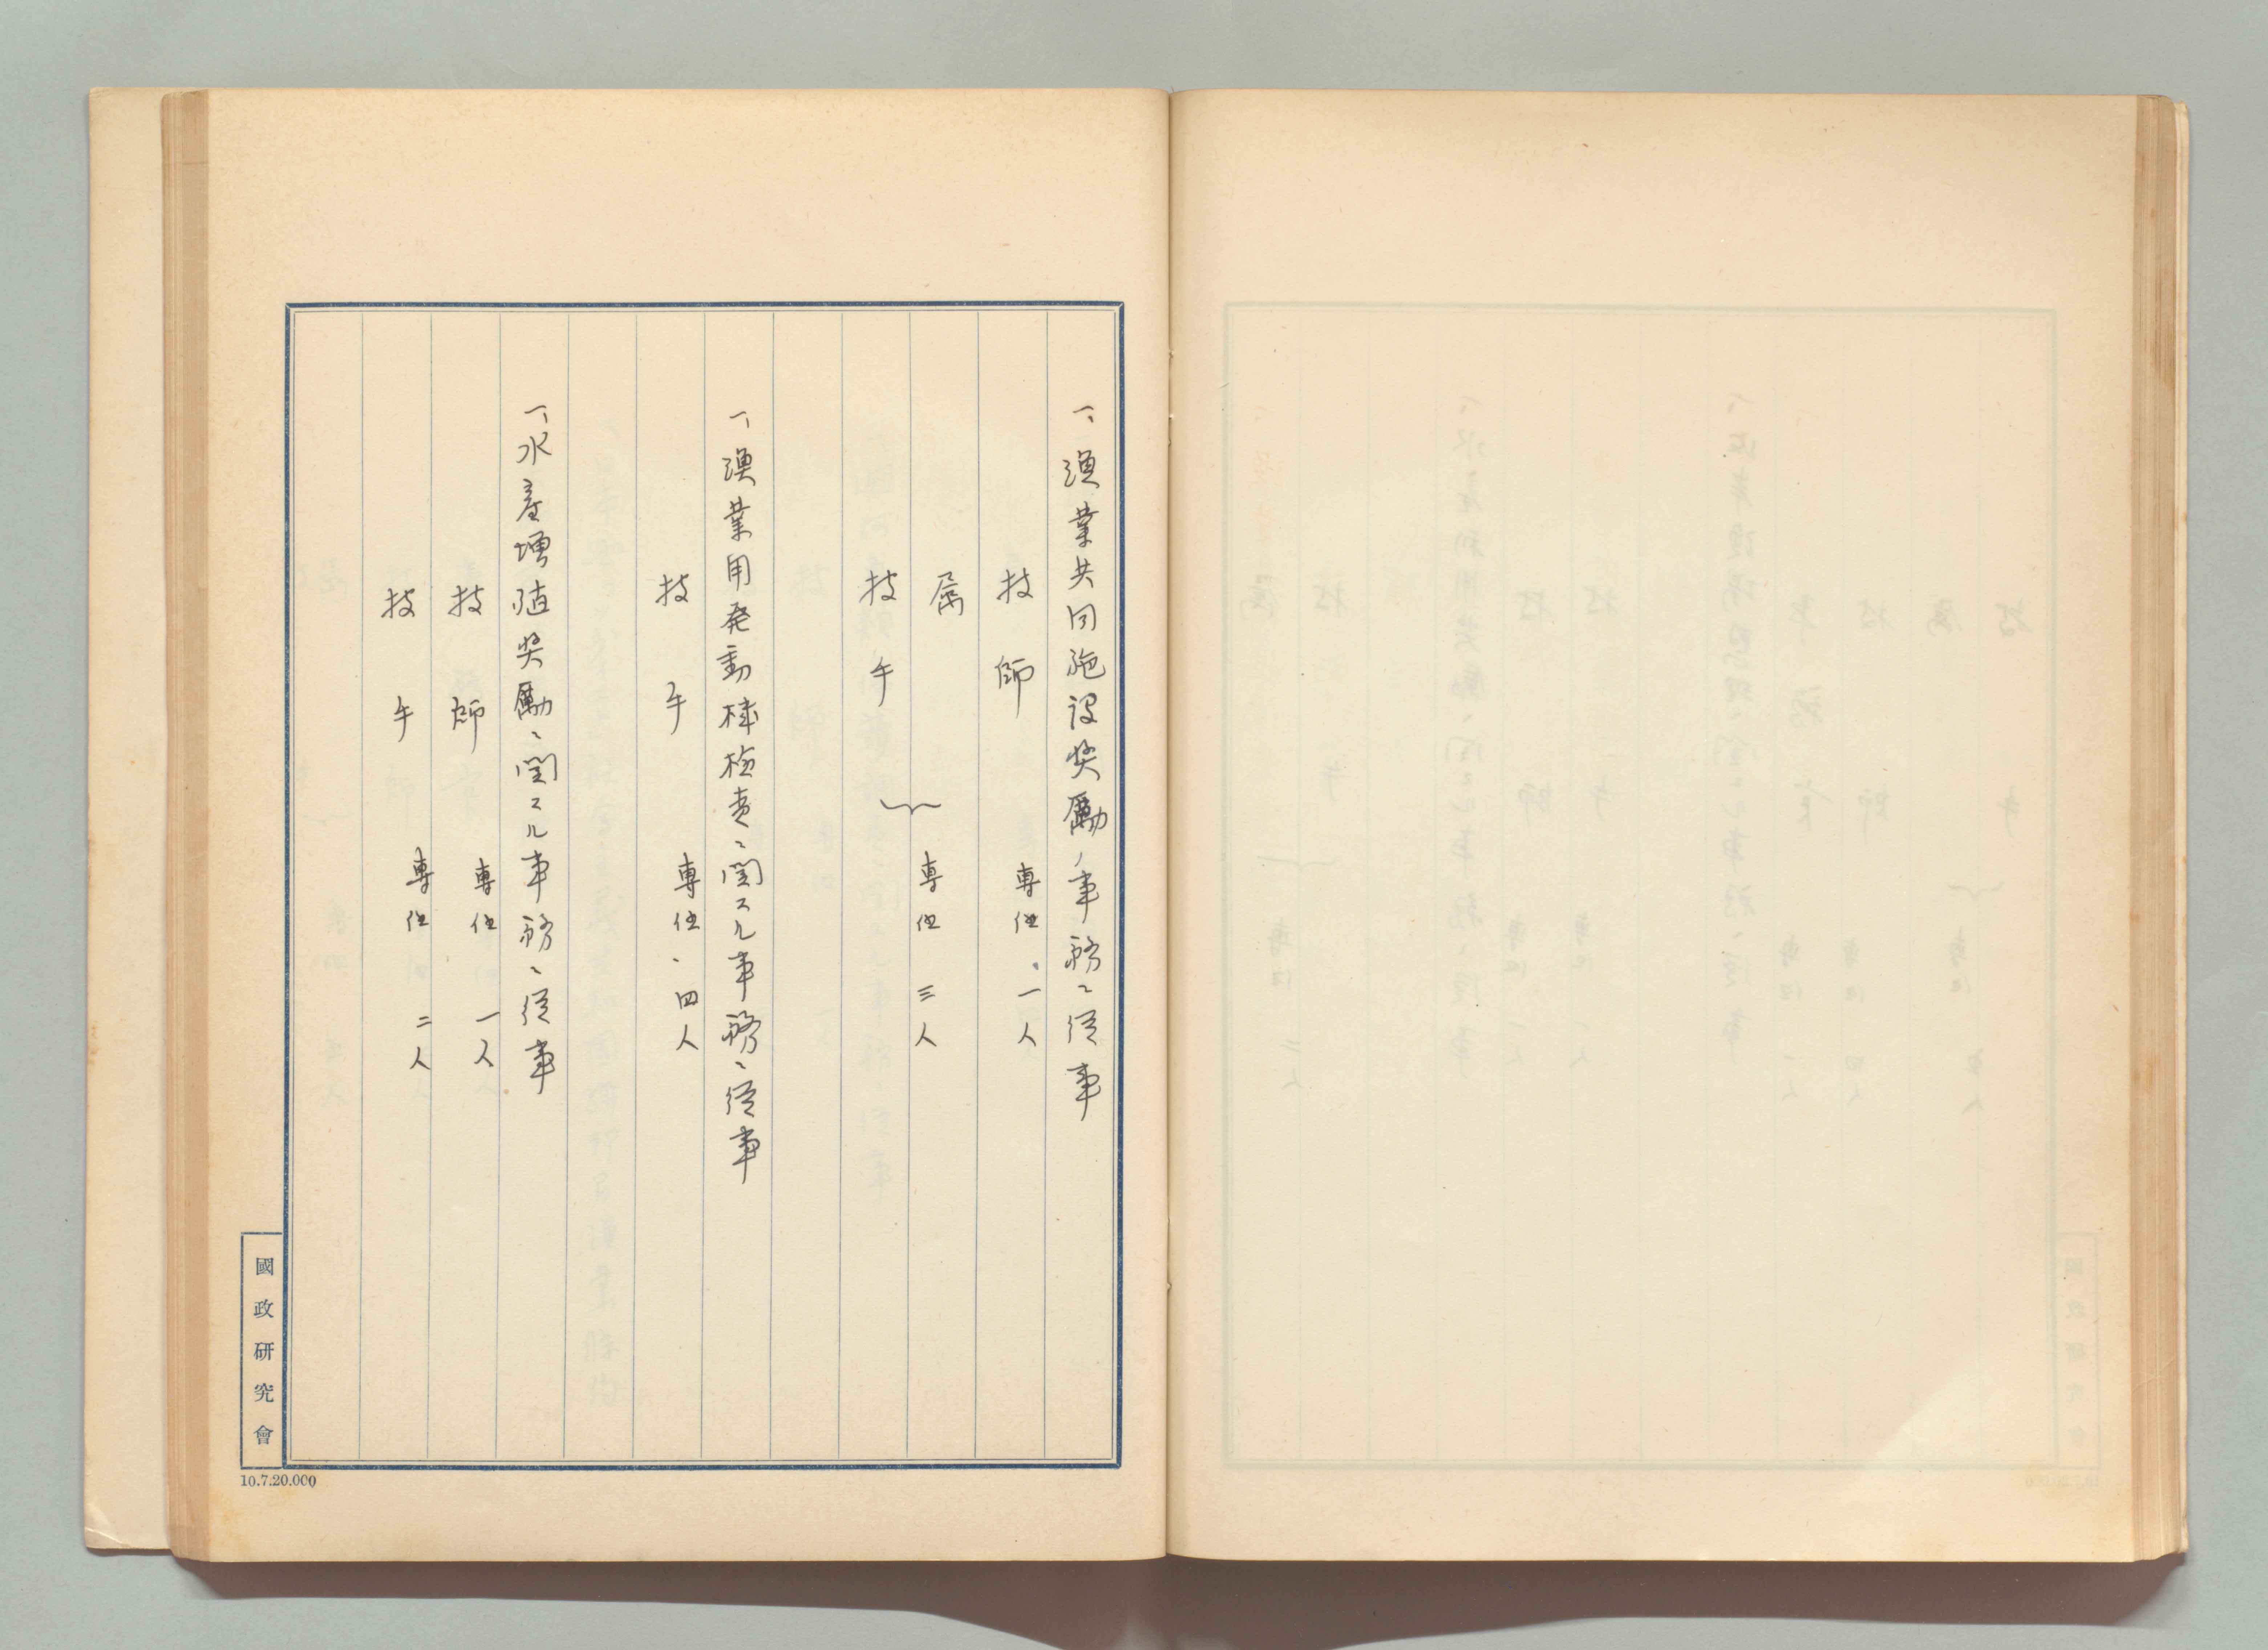 一、漁業共同施設奨励ノ事務ニ従事
技師 専任 一人
属 専任 三人
技手
一、漁業用発動機検査ニ関スル事務ニ従事
技手 専任 四人
一、水産増殖奨励ニ関スル事務ニ従事
技師 専任 一人
技手 専任 二人
國政研究會
10.7.20.000